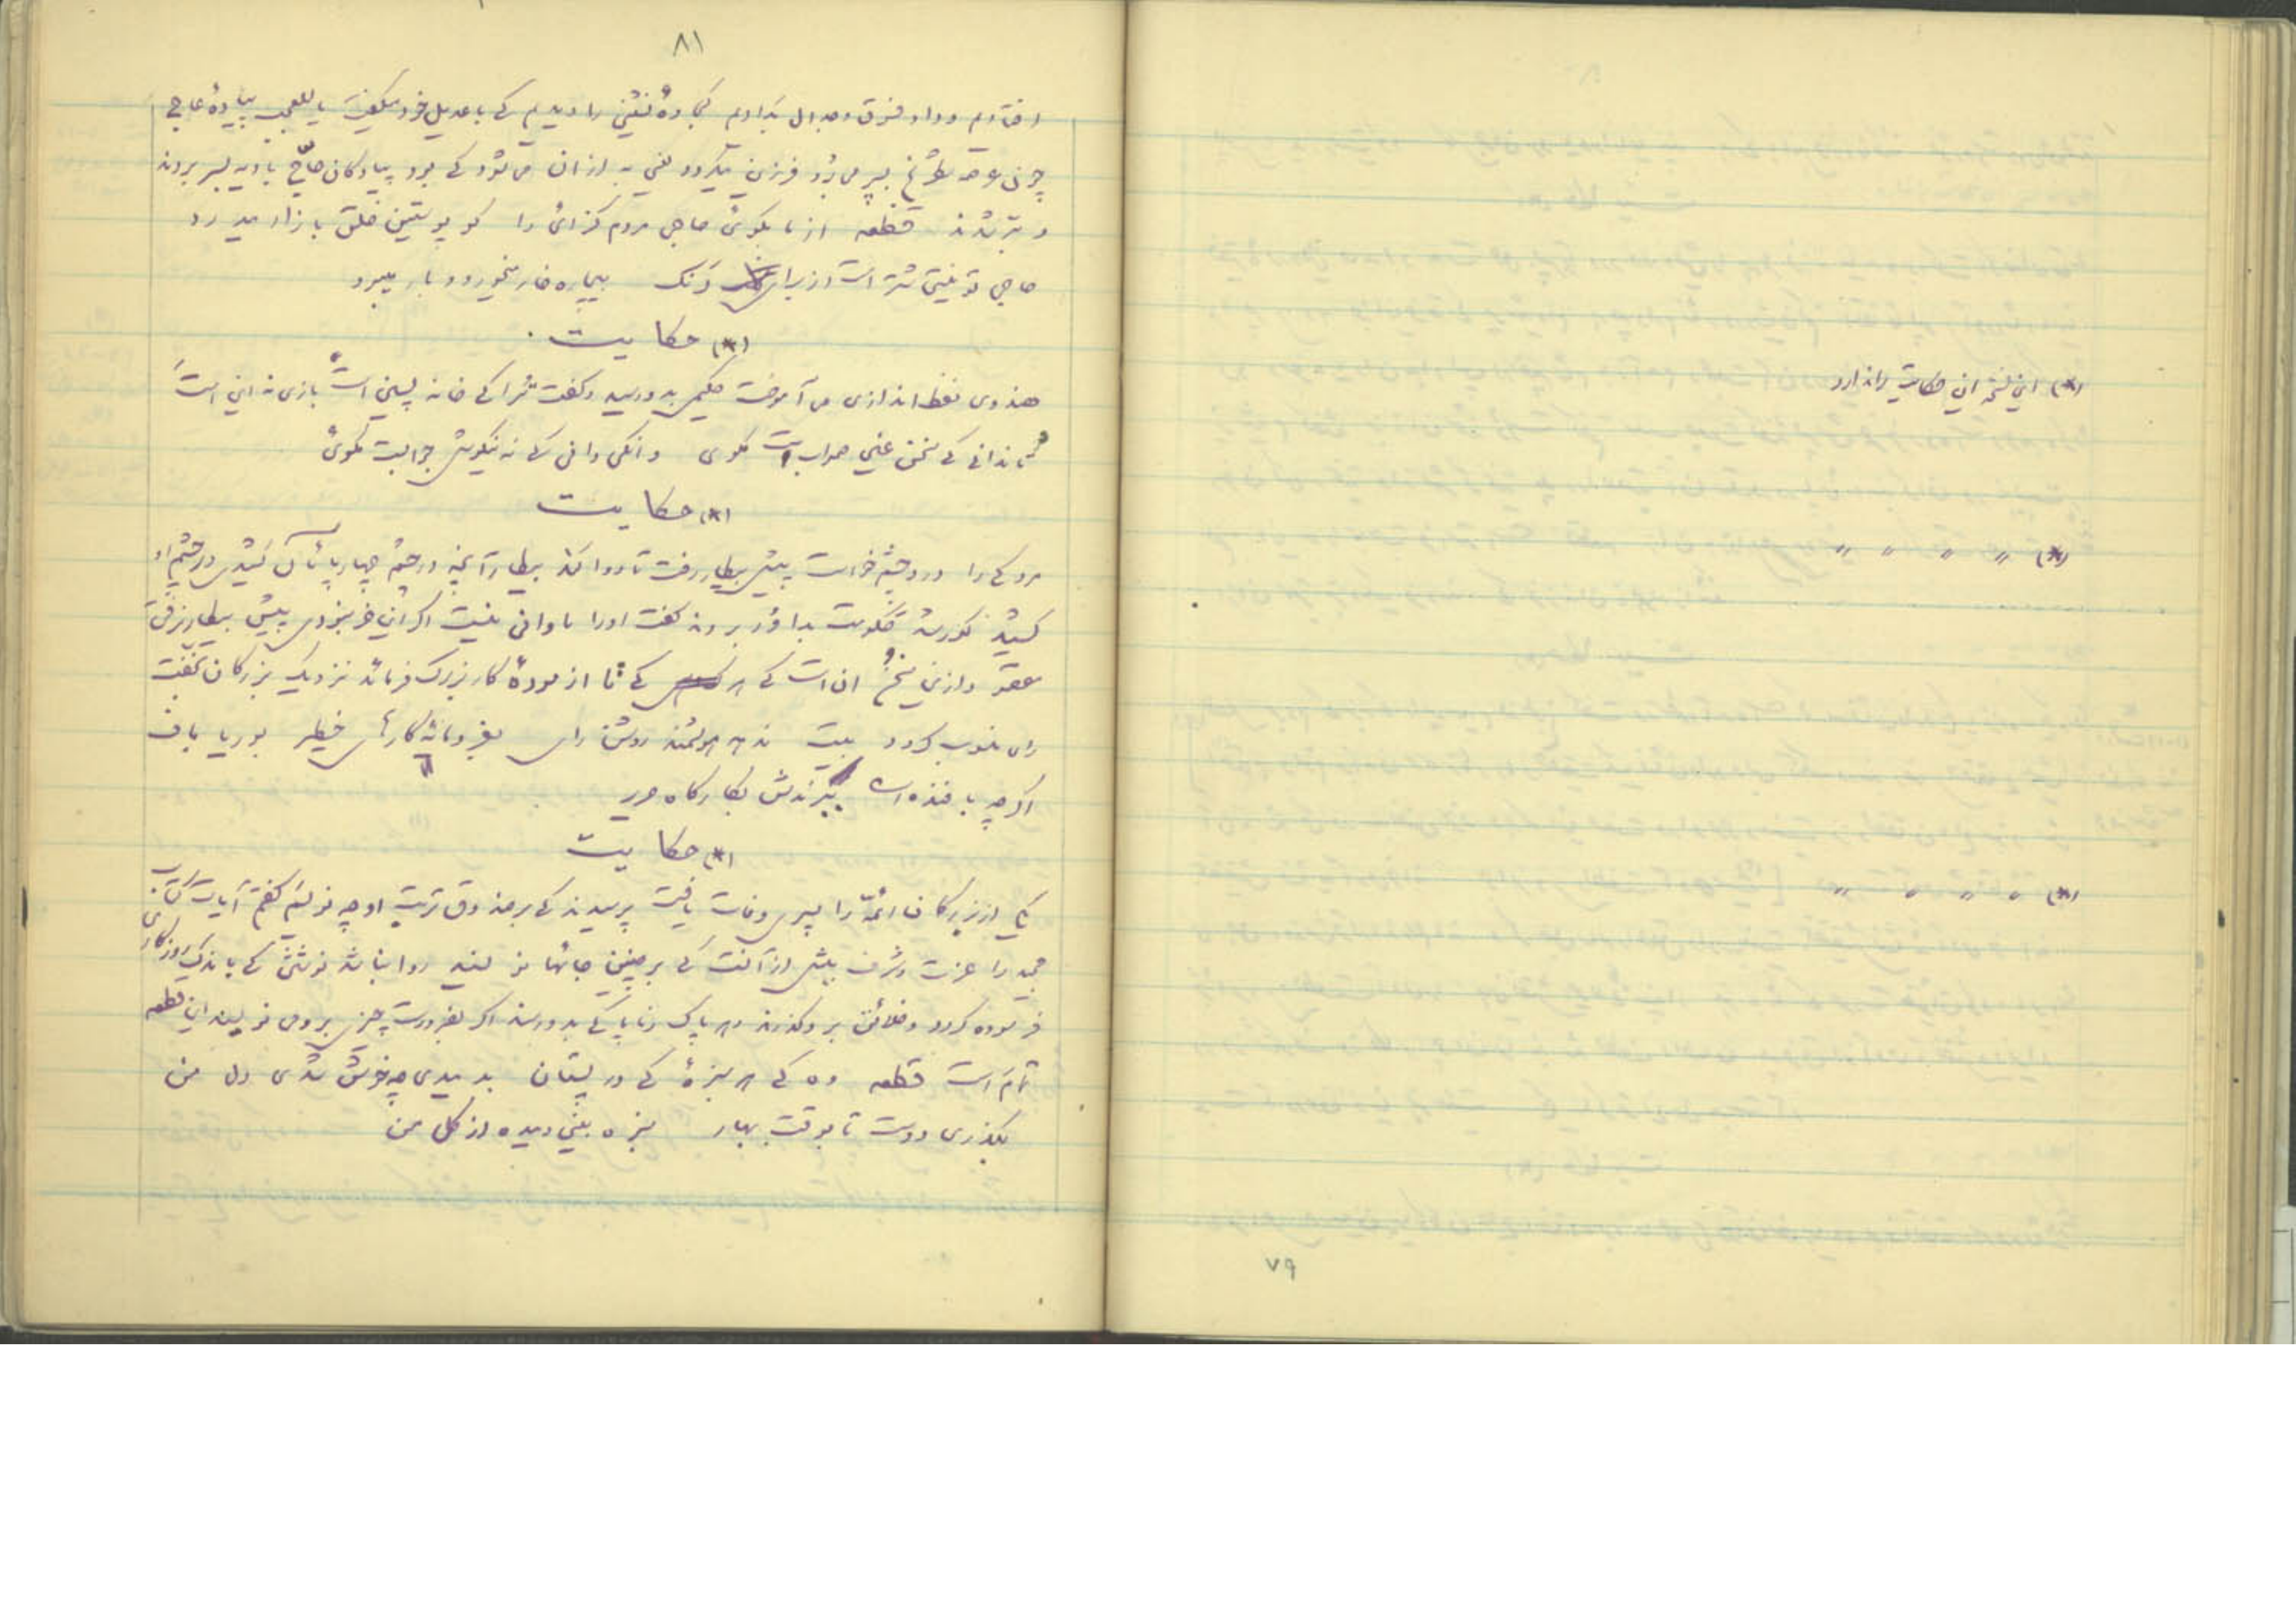 ۸۱
افتادیم و داد فسق و جدال بدادیم کجاوهٔ نشینی را دیدیم که با عدیل خود میگفت یاللعجب پیادهٔ عاج
چون عرصه شطرنج بسر می‌برد فرزین میگردد یعنی به از آن می‌شود که بود پیادگان حاجّ بادیه بسر بردند
و بتر شدند قطعه از ما بگوئ حاجی مردم گزائ را کو پوستین خلق بازار میدرد
حاجی تو نیستی شتر است از برای آنک بیچاره خار میخورد و بار میبرد
(*) حکایت
هندوی نفط اندازی می آموخت حکیمی بدو رسید و گفت ترا که خانه نیین است بازی نه این است
تا ندانی که سخن عین صوابست مگوی وانکی دانی که نه نیکوش جوابست مگوئ
(*) حکایت
مردکی را درد چشم خواست پیش بیطار رفت تا دوا کند بیطار آنچه در چشم چهارپایان کشیدی در چشم او
کشید کور شد حکومت بداور بردند گفت اورا تاوانی نیست اگر این خر نبودی پیش بیطار نرفتی
مقصود ازین سخن آن است که هر که نا ازمودهٔ کار بزرگ فرماید نزدیک بزرگان بخفت
رای منسوب گردد بیت ندهد هوشمند روشن رای بفرومایه کارهای خطیر بوریا باف
اگرچه بافنده است نبرندش بکارگاه حریر
(*) حکایت
یکی از بزرگان ائمّه را پسری وفات یافت پرسیدند که بر صندوق تربت او چه نویسیم گفت آیات کتاب
مجید را عزت و شرف بیش از آنست که بر چنین جایها نویسند روا نباشد نوشتن که باندک روزگاری
فرسوده گردد و خلائق برو گذرند و هر پاک و ناپاکی بدو رسند اگر بضرورت چیزی بر وی نویسند این قطعه
تمام است قطعه وه که هر سبزهٔ که در بستان بدمیدی چه خوش شدی دل من
بگذری دوست تا بوقت بهار سبزه بینی دمیده از گل من
(*) این نسخه این حکایت را ندارد
(*) 〃 〃 〃 〃
(*) 〃 〃 〃 〃
۷۹